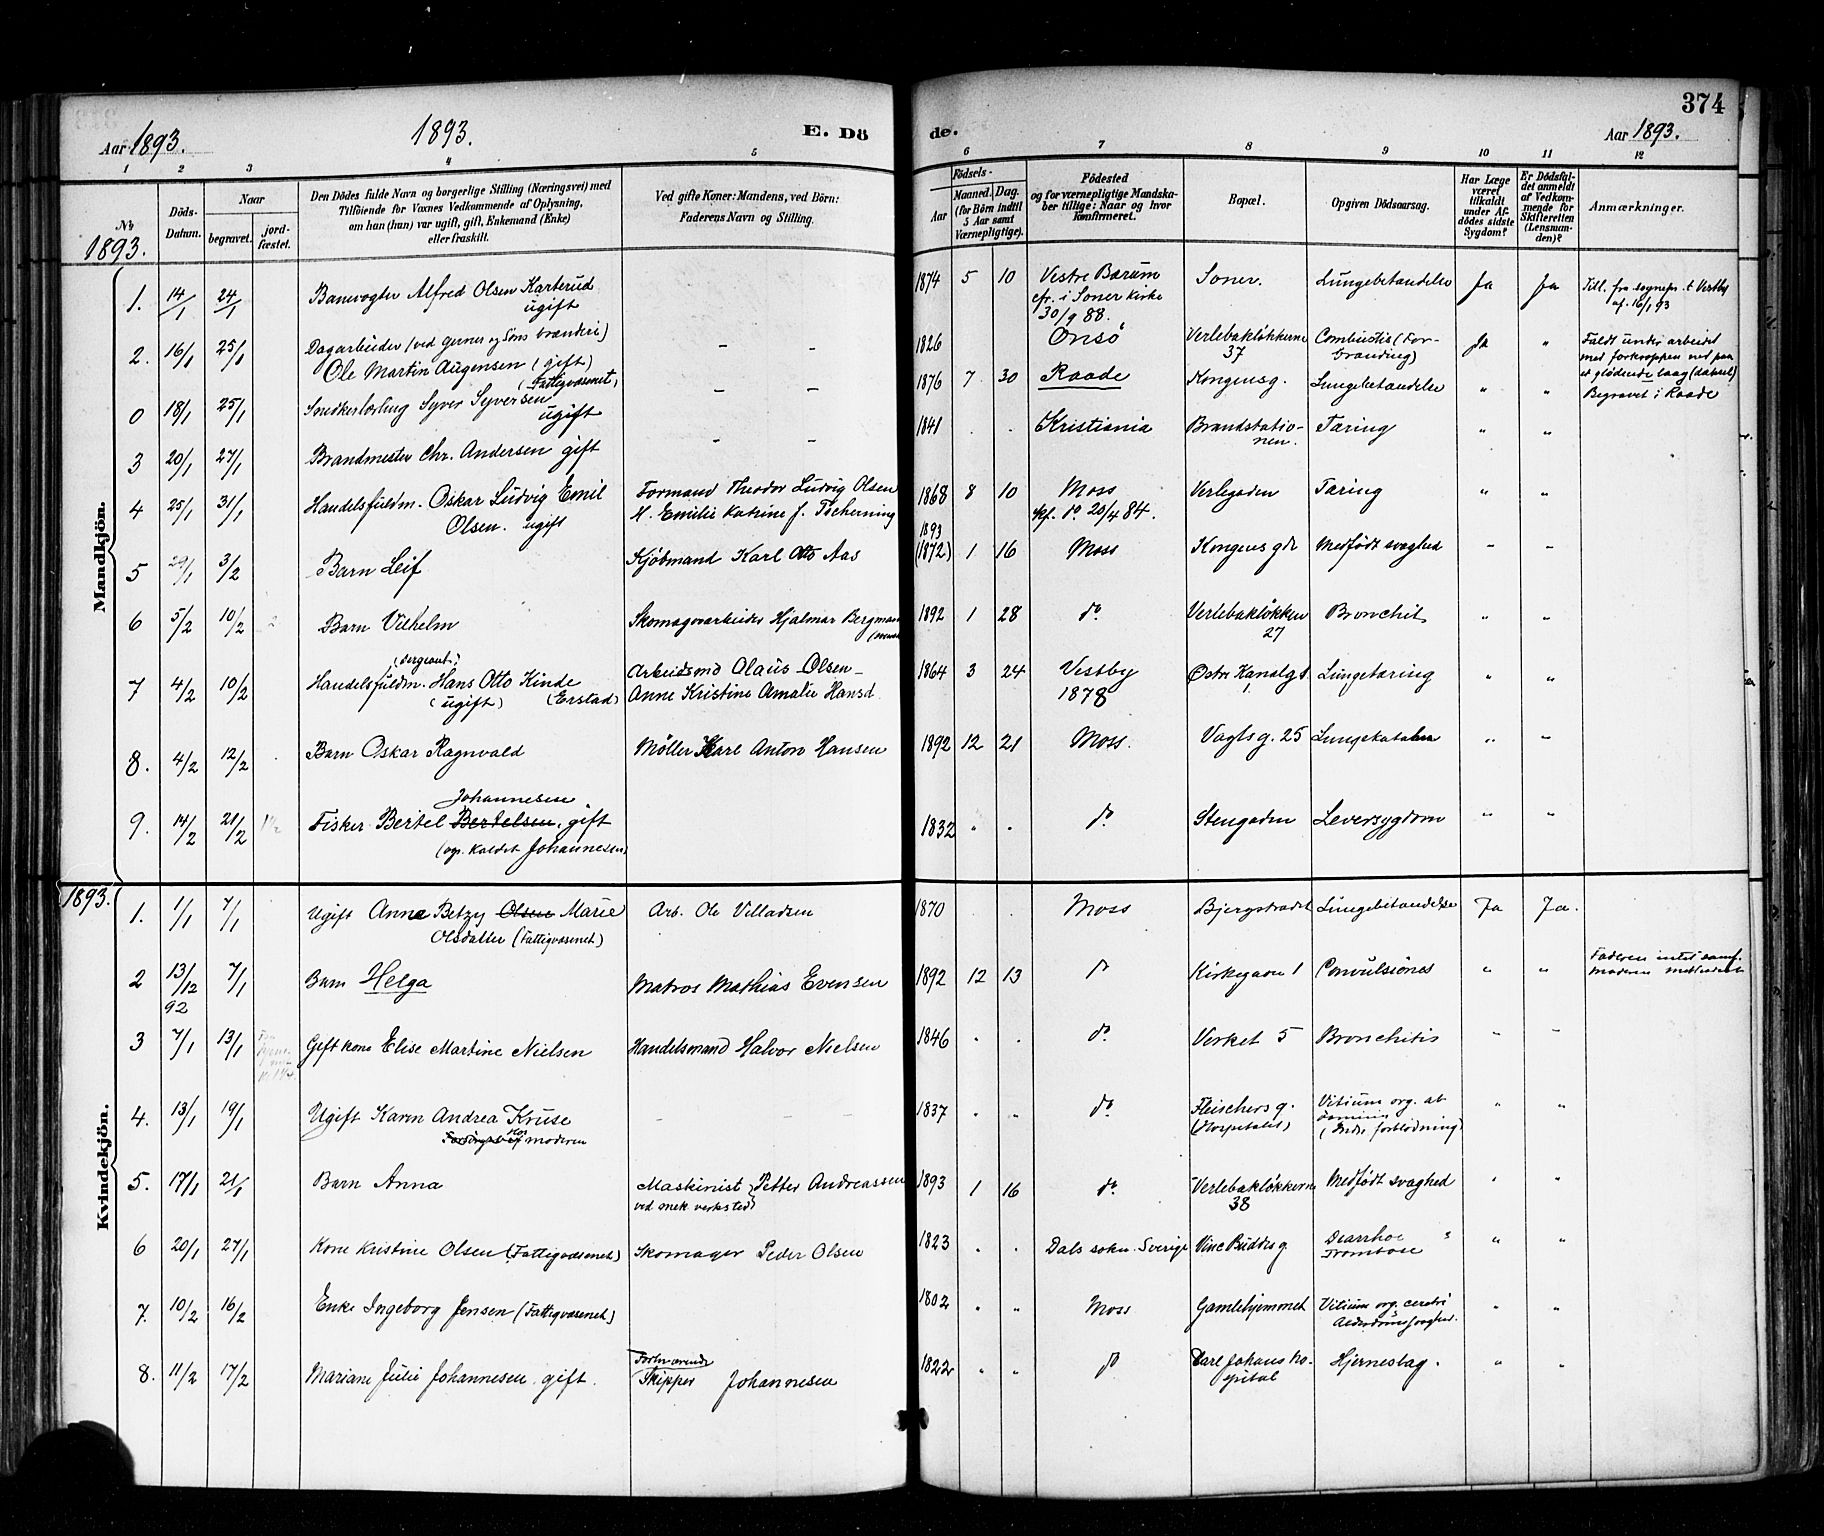 374
Aar 1893.
1893.
E. Dö
de.
Aar 1893.
1 2 3 4 5 6 7 8 9 10 11 12
№
1893.
Döds-Datum.
Naar
begravet.
jord-fæstet.
Den Dödes fulde Navn og borgerlige Stilling (Næringsvei) med
Tilföiende for Voxnes Vedkommende af Oplysning,
om han (hun) var ugift, gift, Enkemand (Enke)
eller fraskilt.
Ved gifte Koner: Mandens, ved Börn:
Faderens Navn og Stilling.
Födsels-
Aar
Maaned. Dag.
(for Börn indtil
5 Aar samt
Værnepligtige).
Födested
og for værnepligtige Mandska-
ber tillige: Naar og hvor
Konfirmeret.
Bopæl.
Opgiven Dödsaarsag.
Har Læge
været
tilkaldt
under Af-
dödes sidste
Sygdom?
Er Dödsfal-
det anmeldt
af Vedkom-
mende for
Skifteretten
(Lensman-
den)?
Anmærkninger.
Mandkjön.
1. 14/1 24/1 Banevogter Alfred Olsen Karterud ugift 1874 5 10 Vestre Bærum Soner. Lungebetændelse Ja Ja Till. fra sognepr. t Vestby
cfr. i Soner Kirke af. 16/1 93
30/9 88.
2. 16/1 25/1 Dagarbeider (ved Gerner og Søns brænderi) - - 1826 Onsö Verlebakløkkerne 37 Combustis (For-brænding) Ja " Faldt under arbeidet
Ole Martin Augensen (gift) med forkroppen ned paa
(Fattigvæsenet) et glödende laag
0 18/1 25/1 Snedkerlærling Syver Syversen ugift - - 1876 7 30 Raade Kongensg. Lungebetændelse " " Begravet i Raade
3 20/1 27/1 Brandmester Chr. Andersen gift - - 1841 . . Kristiania Brandstatio-nen. Tæring " "
4 25/1 31/1 Handelsfuldm. Oskar Ludvig Emil Formand Theodor Ludvig Olsen 1868 8 10 Moss Verlegaden Tæring " "
Olsen. ugift H. Emilie Katrine f. Tscherning kf. do. 20/4 84.
5 29/1 3/2 Barn Leif Kjöbmand Karl Otto Aas 1893 (1872) 1 16 Moss Kongens gd Medfödt svaghed - -
6 5/2 10/2 Barn Vilhelm Skomagerarbeider Hjalmar Bergman 1892 1 28 do. Verlebakløkken 27 Bronchit " "
7 4/2 10/2 (sergeant) Arbeidsmd Olaus Olsen- 1864 3 24 Vestby Östre Kanalgt. Lungetæring " "
Handelsfuldm. Hans Otto Kinde Anne Kristine Amalie Hansd. 1878
(ugift) (Erstad)
8. 4/2 12/2 Barn Oskar Ragnvald Møller Karl Anton Hansen 1892 12 21 Moss. Vogtsg. 25 Lungekatarrh " "
9. 14/2 21/2 Johannesen
Fisker Bertel Bertelsen, gift 1832 " . do. Stengaden Leversygdom " "
(ogs. kaldet Johannesen)
1893.
Kvindekjön.
1. 1/1 7/1 Ugift Anna Betzy Olsen Marie Arb. Ole Villadsen 1870 . . Moss Bjergstrædet Lungebetændelse Ja Ja.
Olsdatter (Fattigvæsenet)
2 13/12 92 7/1 Barn Helga Matros Mathias Evensen 1892 12 13 do Kirkegaten 1 Convulsiones " " Faderen intet samf.
3 7/1 13/1 Gift kone Elise Martine Nielsen Handelsmand Halvor Nielsen 1846 . . do. Verket 5 Bronchitis " "
4. 13/1 19/1 Ugift Karen Andrea Kruse - - 1837 " " do. Fleischers g. (Hospitalet) Vitium org. ab-
Forsörget af Hos moderen dominis
(Indre forblödning)
5. 17/1 21/1 Barn Anna Maskinist Petter Andreassen 1893 1 16 do. Verlebakløkkerne 38 Medfödt svaghed " "
ved mek verksted
6 20/1 27/1 Kone Kristine Olsen (Fattigvæsenet) Skomager Peder Olsen 1823 . . Dals sokn. Sverige Vinc Buddes g. Diarrhoe " "
Trombose
7. 10/2 16/2 Enke Ingeborg Jensen (Fattigvæsenet) 1802 " " Moss Gamlehjemmet Vitium org. cerebri " "
Alderdomssvaghed.
8. 11/2 17/2 Mariane Julie Johannesen gift. Forhenværende
Skipper Johannesen 1822 " " do Carl Johans ho-spital Hjerneslag. " "